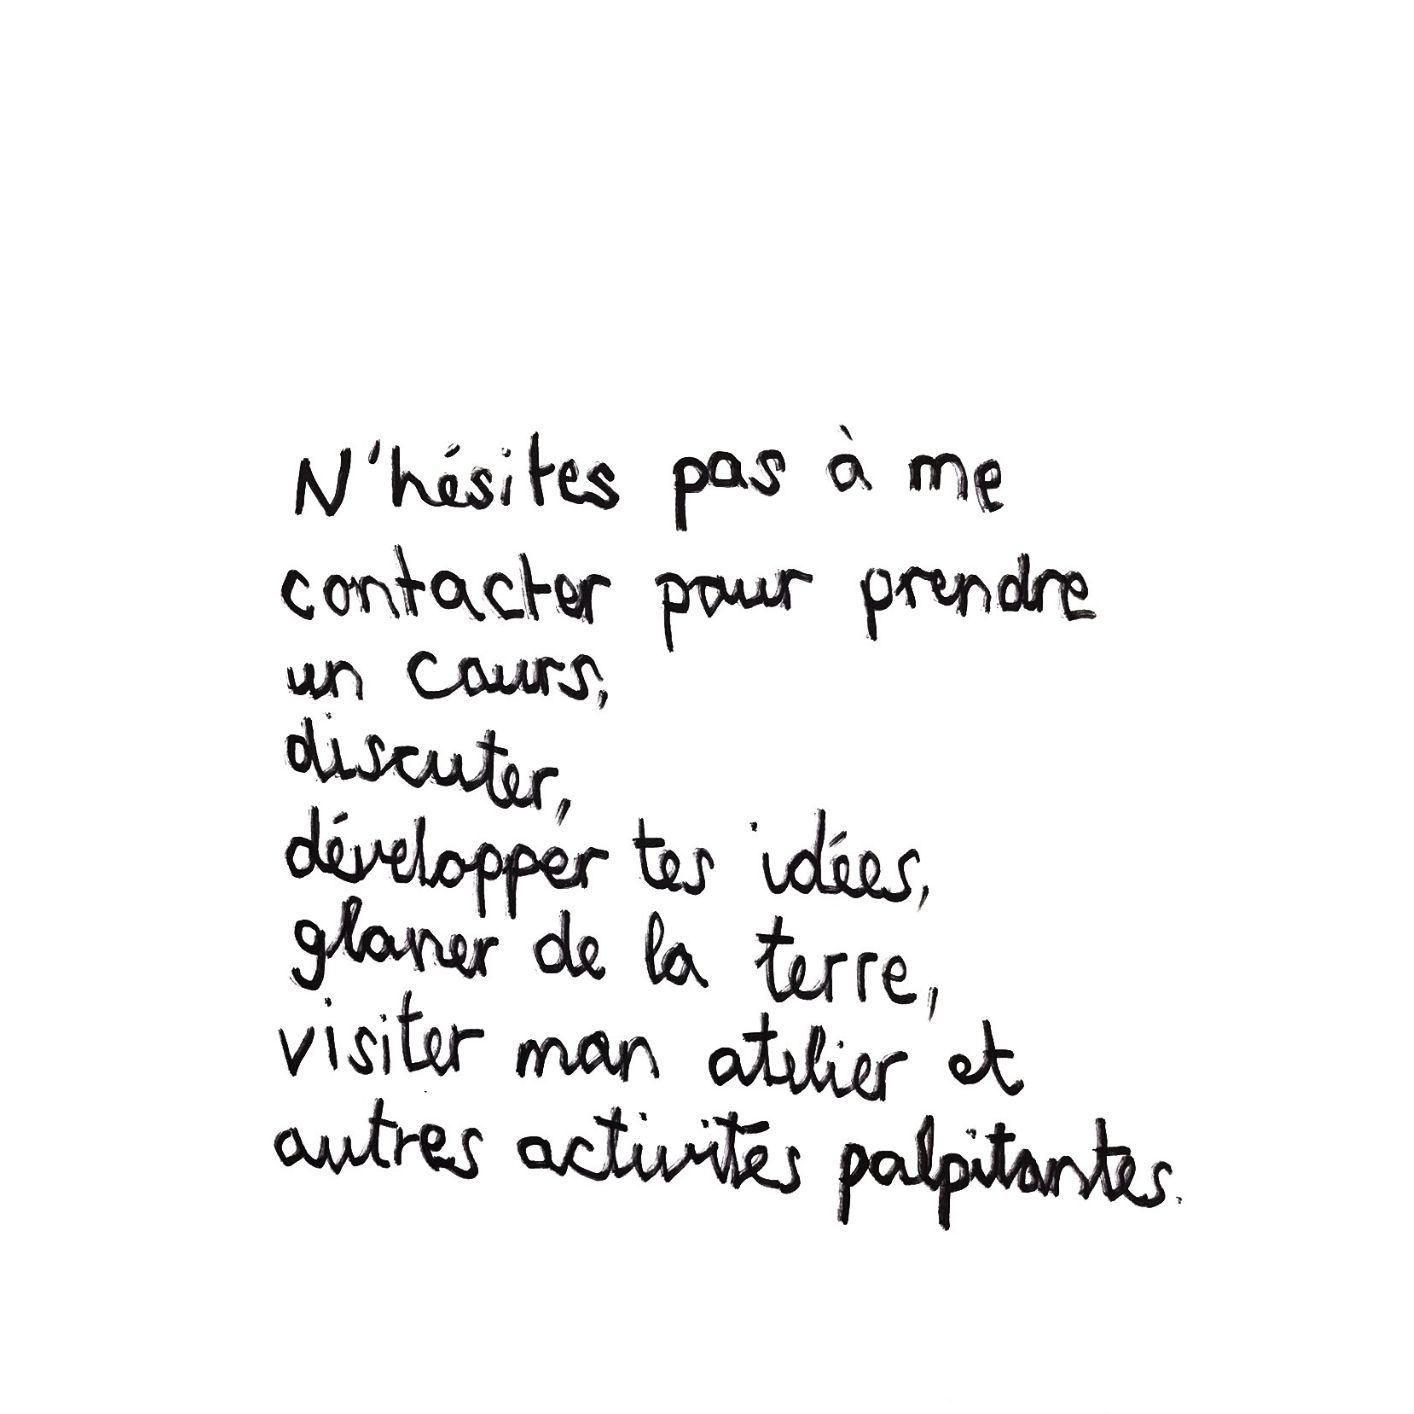 N'hésites pas à me
contacter pour prendre
un cours,
discuter,
développer tes idées,
glaner de la terre,
visiter mon atelier et
autres activités palpitantes.